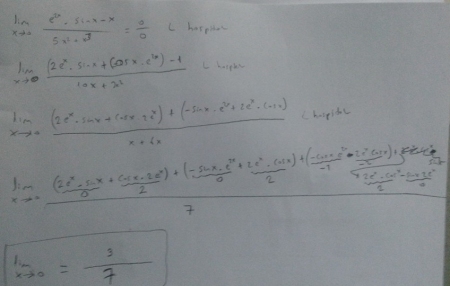 lim x→0 e²ˣ · sinx - x / 5x² - x³ = 0/0 L hospital
lim x→0 (2eˣ · sinx + cosx · e²ˣ) - 1 / 10x + 3x² L hospital
lim x→0 (2eˣ · sinx + cosx 2eˣ) + (-sinx · e²ˣ + 2eˣ · cosx) / x + 6x L hospital
lim x→0 (2eˣ · sinx + cosx · 2eˣ) + (-sinx · e²ˣ + 2eˣ · cosx) + (-cosx · e²ˣ 2eˣ cosx) +
0 2 0 2 -1 -2
+ 2eˣ - cosx - sinx 2eˣ
2 0
7
lim x→0 = 3 / 7